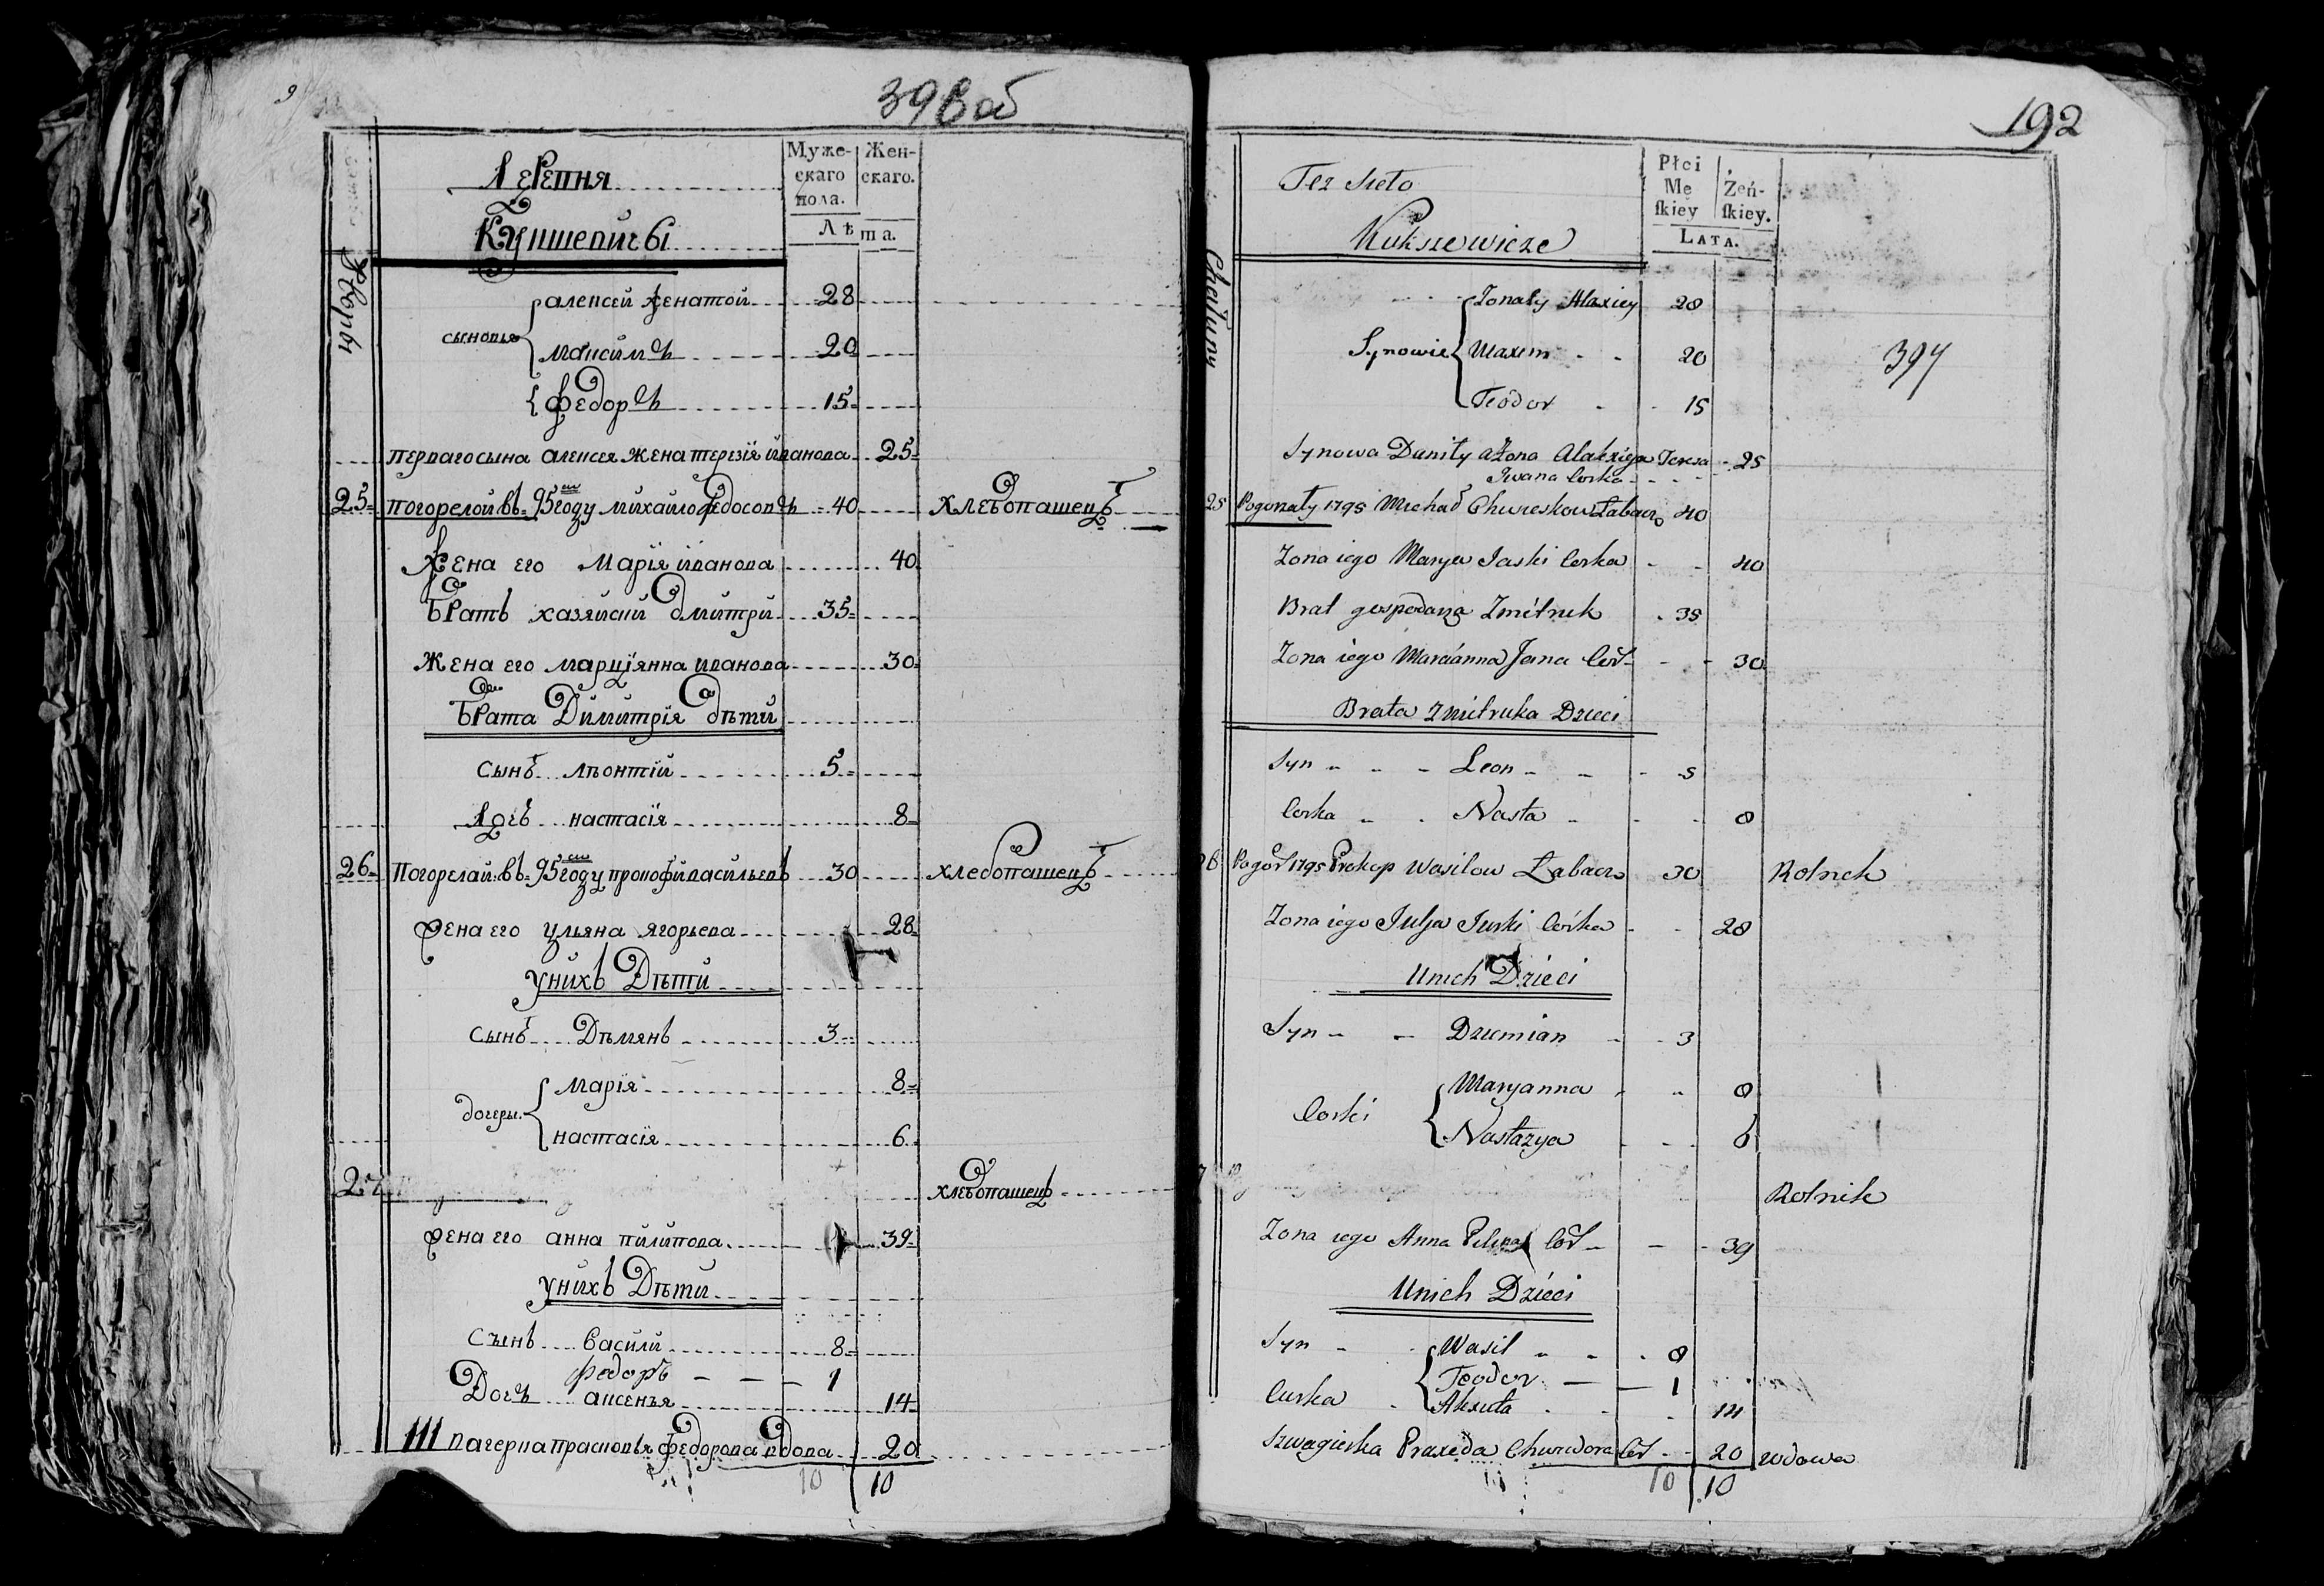 39 в об
Деревня
Кукшевичы
Муже-
скаго
пола.
Жен-
скаго.
Лѣта.
№ дворы
сыновья
алексей женатой 28
максимъ 20
федоръ 15
первагосына алексея жена терезiя иванова 25
25 погорелой въ 95 году михайло федосовъ 40 хлебопашецъ
жена его марiя иванова 40
братъ хазяйский дмитрий 35
жена его марцiянна иванова 30
брата Димитрiя дѣти
сынъ лѣонтiй 5
дочь настасiя 8
26 погорелай въ 95 году прокофий васильевъ 30 хлебопашецъ
жена его ульяна ягорьева 28
у нихъ Дѣти
сынъ Дѣмянъ 3
дочеры
марiя 8
настасiя 6
27 хлебопашецъ
жена его анна пилипова 39
у нихъ Дѣти
Сынъ василий 8
федоръ 1
Дочь аксенья 14
прасковья федорова вдова 20
10 10
192
Też Sieło
Kukszewicze
Płci
Mę
skiey
Żeń-
skiey.
LATA.
Chałupy
Synowie
Żonaty Alaxiey 28
Maxim 20
Teodor 15
397
Synowa Daniły a Żona Alaxieja Teresa 25
Iwana Corka
25 Pogorzały 1795 Michał Chwieśkow Łabacz 40
Zona iego Marya Jaski Corka 40
Brat gospodarza Zmitruk 35
Zona iego Marcianna Jana Cor 30
Brata Zmitruka Dzieci
Syn Leon 5
Corka Nasta 8
26 Pogor 1795 Prokop Wasilow Łabacz 30 Rolnik
Zona iego Julja Jurki Corka 28
U nich Dzieci
Syn Dziemian 3
Corki
Maryanna 8
Nastazya 6
Rolnik
Zona iego Anna Pilipa Cor 39
U nich Dzieci
Syn Wasil 8
Teodor 1
Curka Aksiuta 14
Szwagierka Praxeda Chwiedora Cor 20 wdowa
10 10